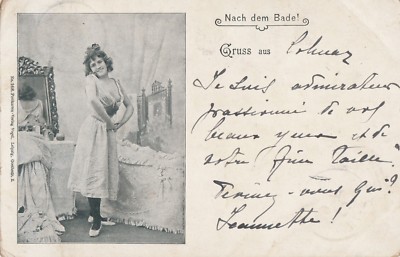 Nach dem Bade!
Gruss aus Colmar
Je suis admirateur
passionné de vos
beaux yeux et de
votre fine taille.
Devinez-vous qui?
Jeannette!